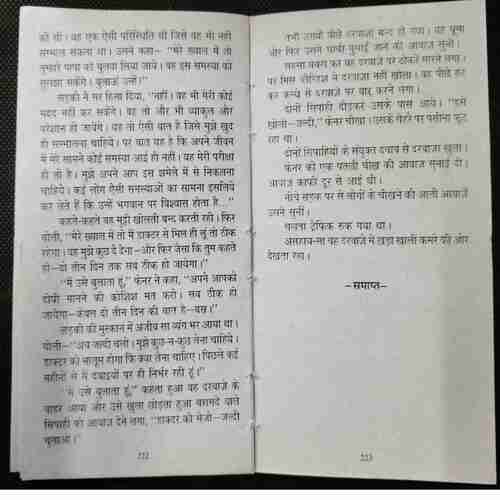 को थी। वह एक ऐसी परिस्थिति थी जिसे वह भी नहीं
सम्भाल सकता था। उसने कहा- "मेरे ख्याल में तो
तुम्हारे पापा को बुलवा लिया जाये। वह इस समस्या को
सुलझा सकेंगे। बुलाऊं उन्हें।"
लड़की ने सर हिला दिया, "नहीं। वह भी मेरी कोई
मदद नहीं कर सकेंगे। वह तो और भी व्याकुल और
परेशान हो जायेंगे। यह तो ऐसी बात है जिसे मुझे खुद
ही सम्भालना चाहिये। पर बात यह है कि अपने जीवन
में मेरे सामने कोई समस्या आई ही नहीं। यह मेरी परीक्षा
ही तो है। मुझे अपने आप इस झमेले में से निकलना
चाहिये। कई लोग ऐसी समस्याओं का सामना इसलिये
कर लेते हैं कि उन्हें भगवान पर विश्वास होता है..."
कहते-कहते वह मुट्ठी खोलती बन्द करती रही। फिर
बोली, "मेरे ख्याल में तो मैं डाक्टर से मिल ही लूं तो ठीक
रहेगा। वह मुझे कुछ दे देगा-और फिर जेसा कि तुम कहते
हो-दो तीन दिन तक सब ठीक हो जायेगा।"
"मैं उसे बुलाता हूं," फेनर ने कहा, "अपने आपको
दोषी मानने की कोशिश मत करो। सब ठीक हो
जायेगा-केवल दो तीन दिन की बात है-बस।"
लड़की की मुस्कान में अजीब सा व्यंग भर आया था।
बोली-"अब जल्दी चलो। मुझे कुछ-न-कुछ लेना चाहिये।
डाक्टर को मालूम होगा कि क्या लेना चाहिए। पिछले कई
महीनों से मैं दवाइयों पर ही निर्भर रही हूं।"
"मैं उसे बुलाता हूं," कहता हुआ वह दरवाज़े के
बाहर आया और उसे खुला छोड़ता हुआ बरामदे वाले
सिपाही को आवाज़ देने लगा, "डाक्टर को भेजो-जल्दी
बुलाओ।"
222
तभी उसके पीछे दरवाज़ा बन्द हो गया। वह घूमा
और फिर उसने चाबी घुमाई जाने की आवाज़ सुनी।
वह दरवाज़े पर ठोकरें मारने लगा।
पर मिस ने दरवाज़ा नहीं खोला। वह पीछे हट
कर कन्धे से दरवाज़े पर वार करने लगा।
दोनों सिपाही दौड़कर उसके पास आये। "इसे
खोलो-जल्दी," फेनर चीखा। उसके चेहरे पर पसीना फूट
रहा था।
दोनों सिपाहियों के संयुक्त दबाव से दरवाज़ा खुला।
फेनर को एक पतली चीख की आवाज़ सुनाई दी।
आवाज़ काफी दूर से आई थी।
नीचे सड़क पर से लोगों के चीखने की आती आवाज़ें
उसने सुनीं।
चलता ट्रैफिक रुक गया था।
असहाय-सा वह दरवाज़े में खड़ा खाली कमरे की ओर
देखता रहा।
-समाप्त-
223